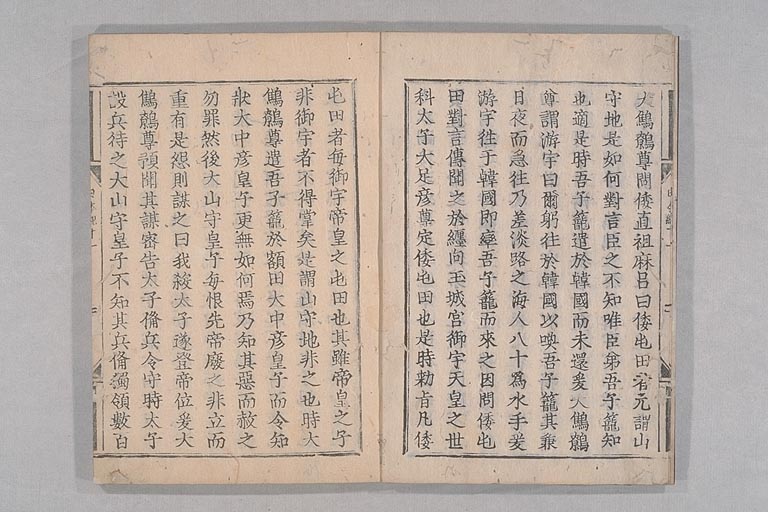 大鷦鷯尊問倭直祖麻呂曰倭屯田者元謂山
守地是如何對言臣之不知唯臣弟吾子籠知
也適是時吾子籠遣於韓國而未還爰大鷦鷯
尊謂淤宇曰爾躬往於韓國以喚吾子籠其兼
日夜而急往乃差淡路之海人八十爲水手爰
淤宇往于韓國即率吾子籠而來之因問倭屯
田對言傳聞之於纒向玉城宮御宇天皇之世
科太子大足彦尊定倭屯田也是時勅旨凡倭
屯田者每御宇帝皇之屯田也其雖帝皇之子
非御宇者不得掌矣是謂山守地非之也時大
鷦鷯尊遣吾子籠於額田大中彦皇子而令知
狀大中彦皇子更無如何焉乃知其惡而赦之
勿罪然後大山守皇子每恨先帝廢之非立而
重有是怨則謀之曰我殺太子遂登帝位爰大
鷦鷯尊預聞其謀密告太子俻兵令守時太子
設兵待之大山守皇子不知其兵俻獨領數百